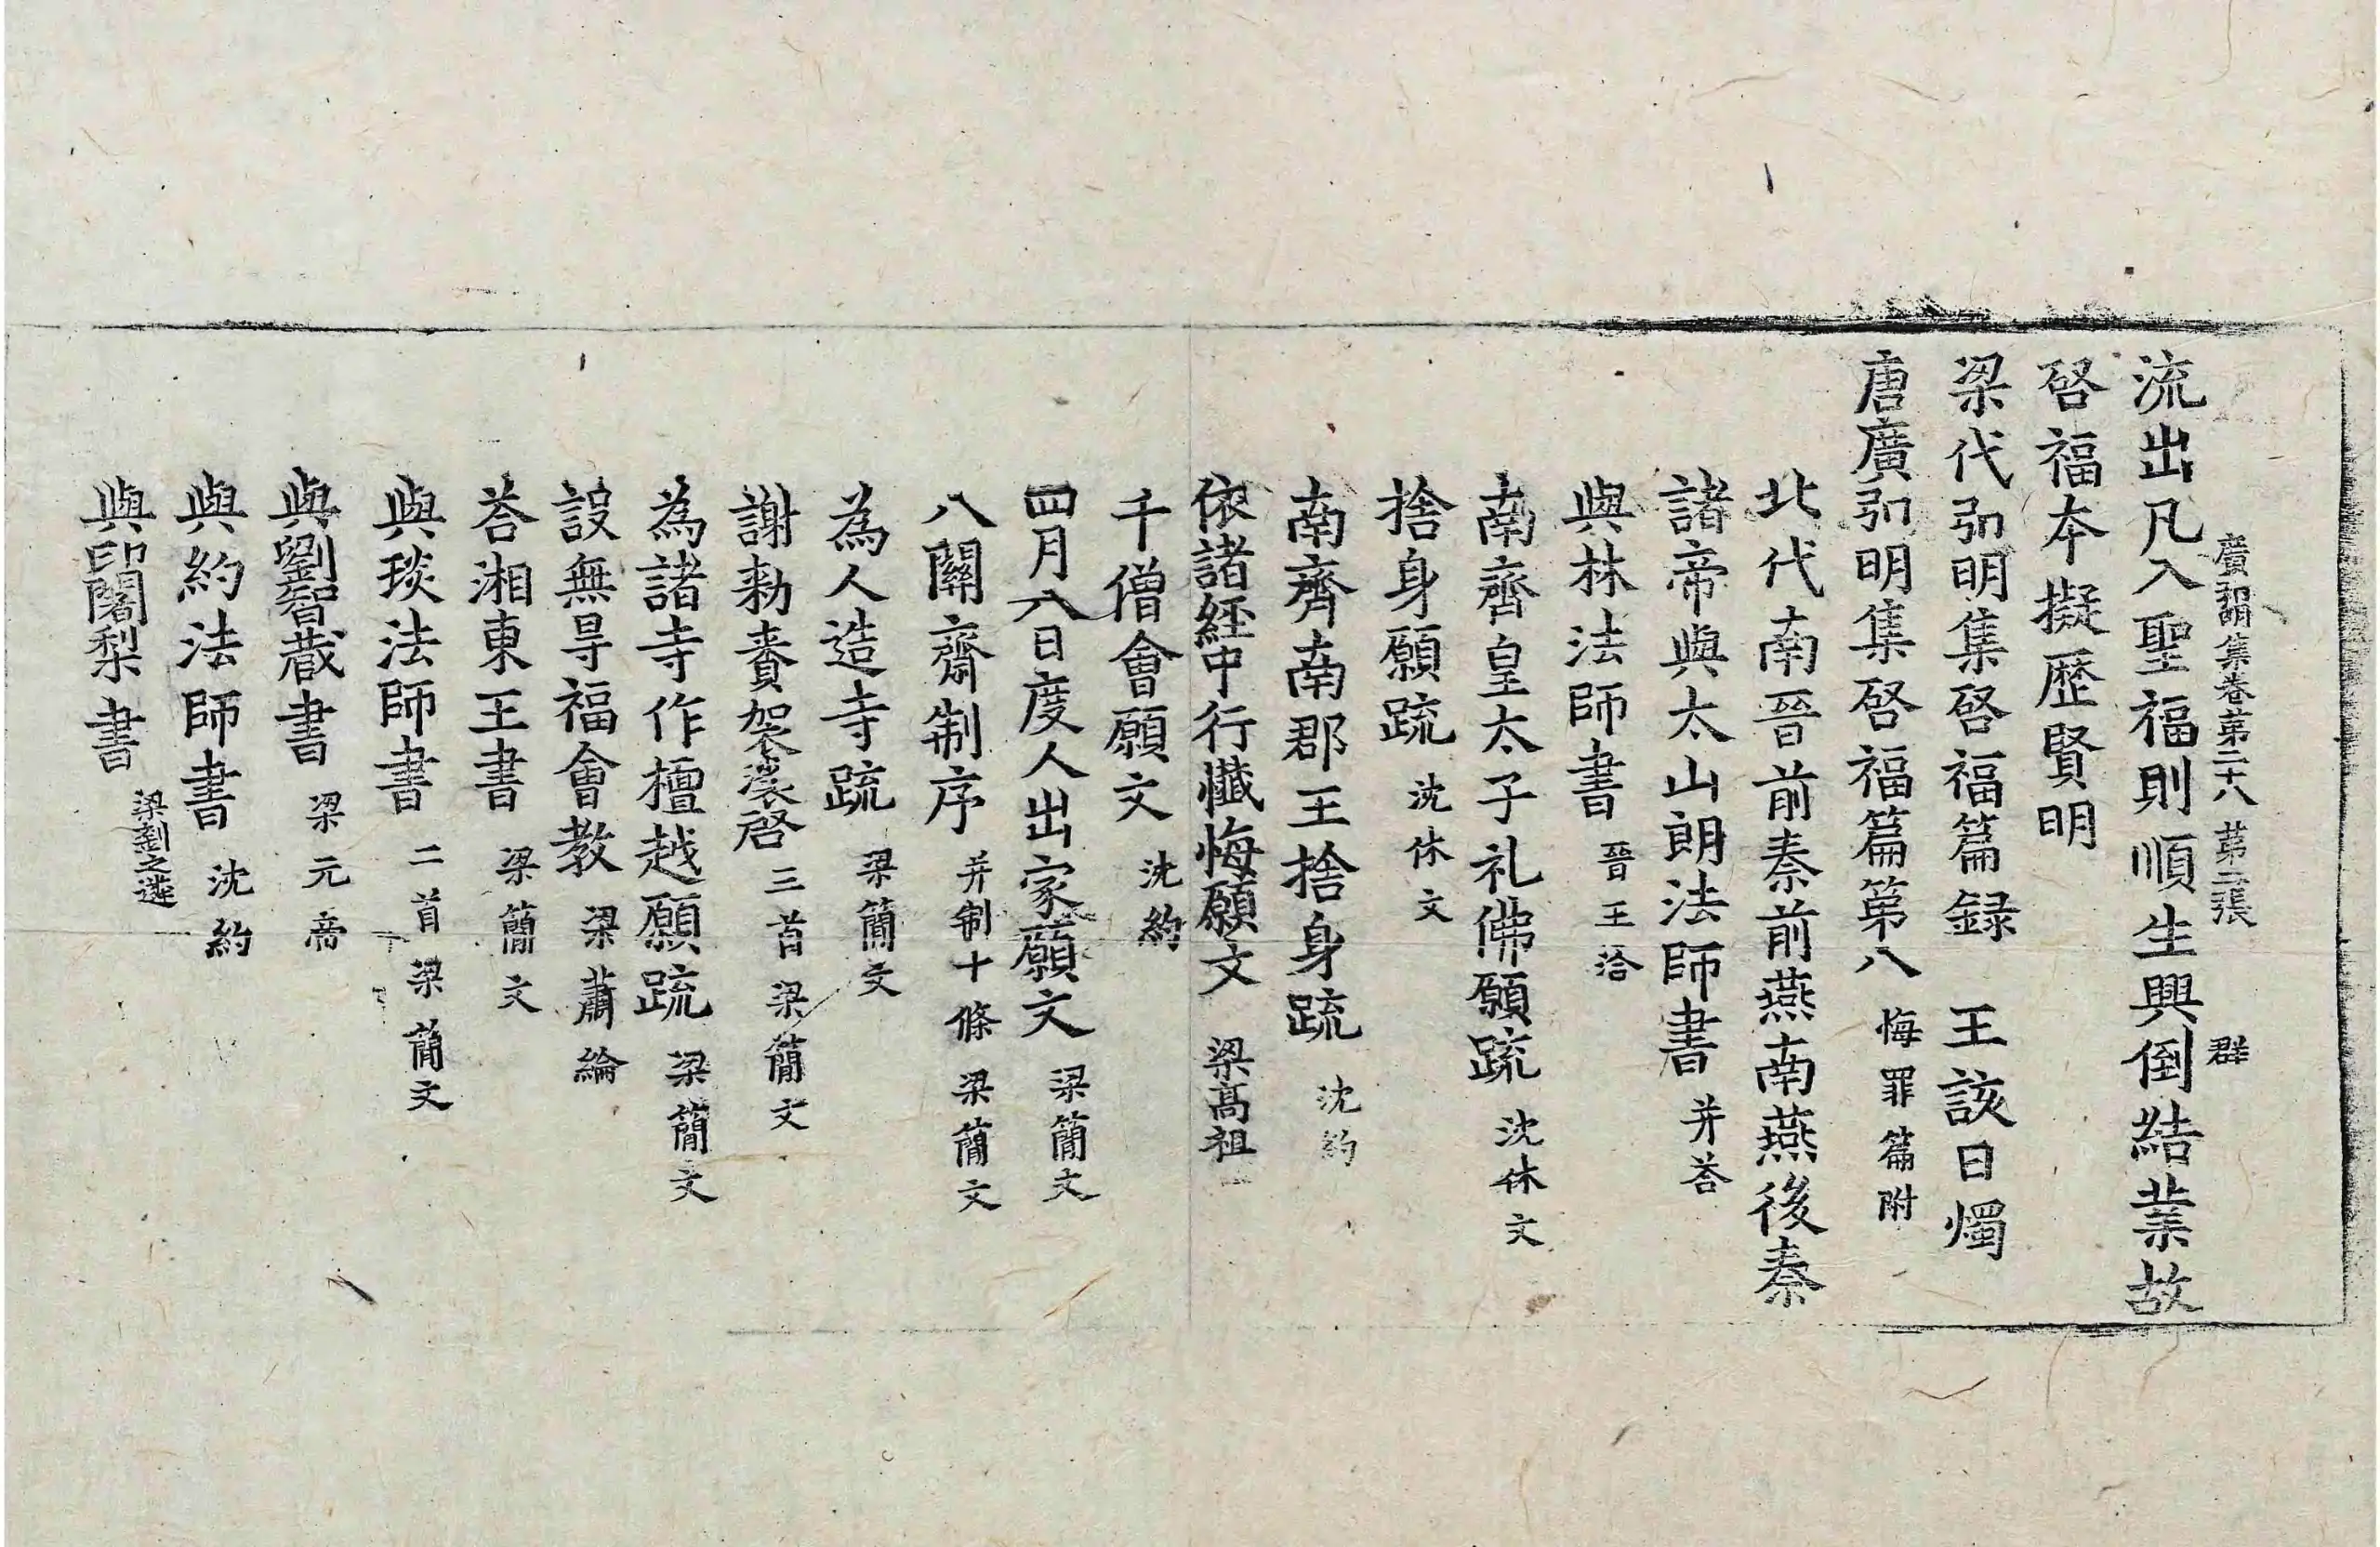 廣弘明集卷第二十八 第二張 群
流出凡入聖福則順生興倒結業故
啓福本擬歷賢明
梁代弘明集啓福篇録 王該日燭
唐廣弘明集啓福篇第八 悔罪篇附
北代南晉前秦前燕南燕後秦
諸帝與太山朗法師書 并荅
與林法師書 晉王洽
南齊皇太子礼佛願疏 沈休文
捨身願疏 沈休文
南齊南郡王捨身疏 沈約
依諸經中行懺悔願文 梁髙祖
千僧會願文 沈約
四月八日度人出家願文 梁簡文
八關齋制序 并制十條 梁簡文
為人造寺疏 梁簡文
謝勑賚袈裟啓 三首 梁簡文
為諸寺作檀越願疏 梁簡文
設無㝵福會教 梁蕭綸
荅湘東王書 梁簡文
與琰法師書 二首 梁簡文
與劉智藏書 梁元帝
與約法師書 沈約
與印闍梨書 梁劉之遴